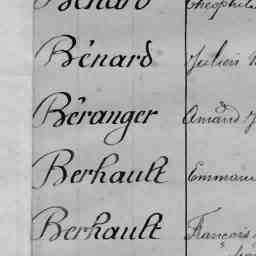 Bénard Théophile
Bénard Julien
Béranger Amand J
Berhault Emmanu
Berhault François